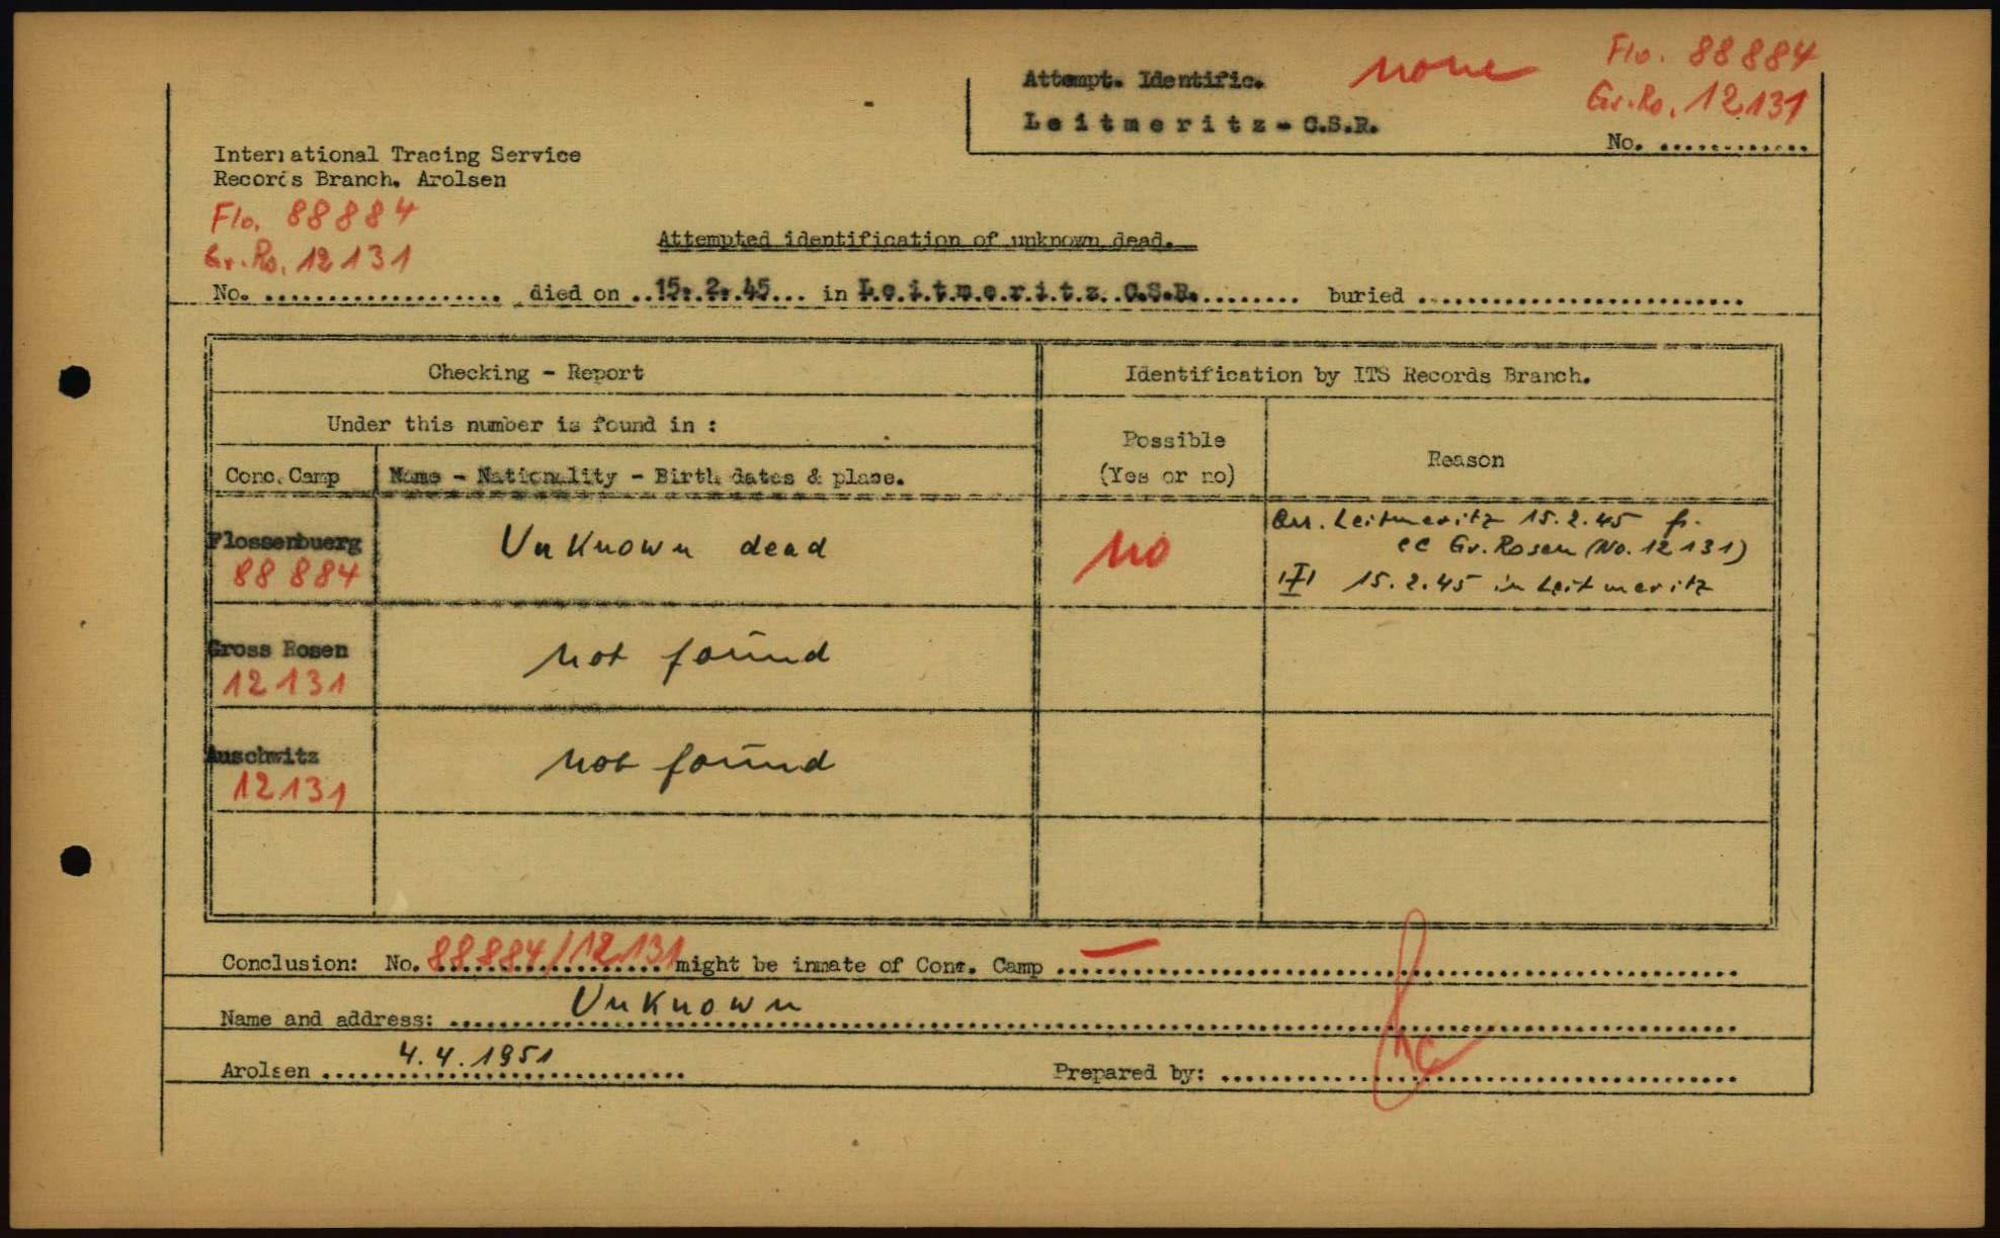 Flo. 88884
Attempt. Identific. none Gr.Ro. 12131
Leitmeritz - C.S.R.
No. ............
International Tracing Service
Records Branch. Arolsen
Flo. 88884
Gr.Ro. 12131
Attempted identification of unknown dead.
No. .................... died on ..15.2.45... in L.e.i.t.m.e.r.i.t.z. C.S.R......... buried ..........................
Checking - Report
Identification by ITS Records Branch.
Under this number is found in :
Possible
(Yes or no)
Reason
Conc. Camp
Name - Nationality - Birth dates & place.
Flossenbuerg
88884
Unknown dead
no
Arr. Leitmeritz 15.2.45 fr.
cc Gr. Rosen (No. 12131)
15.2.45 in Leitmeritz
Gross Rosen
12131
not found
Auschwitz
12131
not found
Conclusion: No. 88884/12131 might be inmate of Conc. Camp — ..........................
Name and address: Unknown
Arolsen 4.4.1951
Prepared by: ..........................